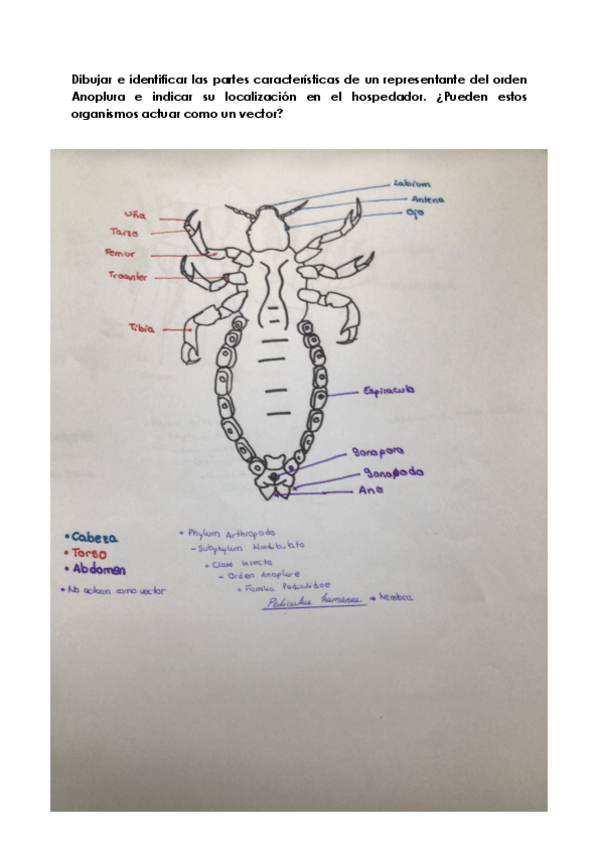 Dibujar e identificar las partes características de un representante del orden
Anoplura e indicar su localización en el hospedador. ¿Pueden estos
organismos actuar como un vector?
Labium
Antena
Ojo
Uña
Tarso
Femur
Trocánter
Tibia
Espiraculo
Gonoporo
Gonopodo
Ano
• Cabeza
• Torso
• Abdomen
• No actúan como vector
• Phylum Arthropoda
- Subphylum Mandibulata
• Clase Insecta
- Orden Anoplure
• Familia Pediculidae
Pediculus humanus → hembra